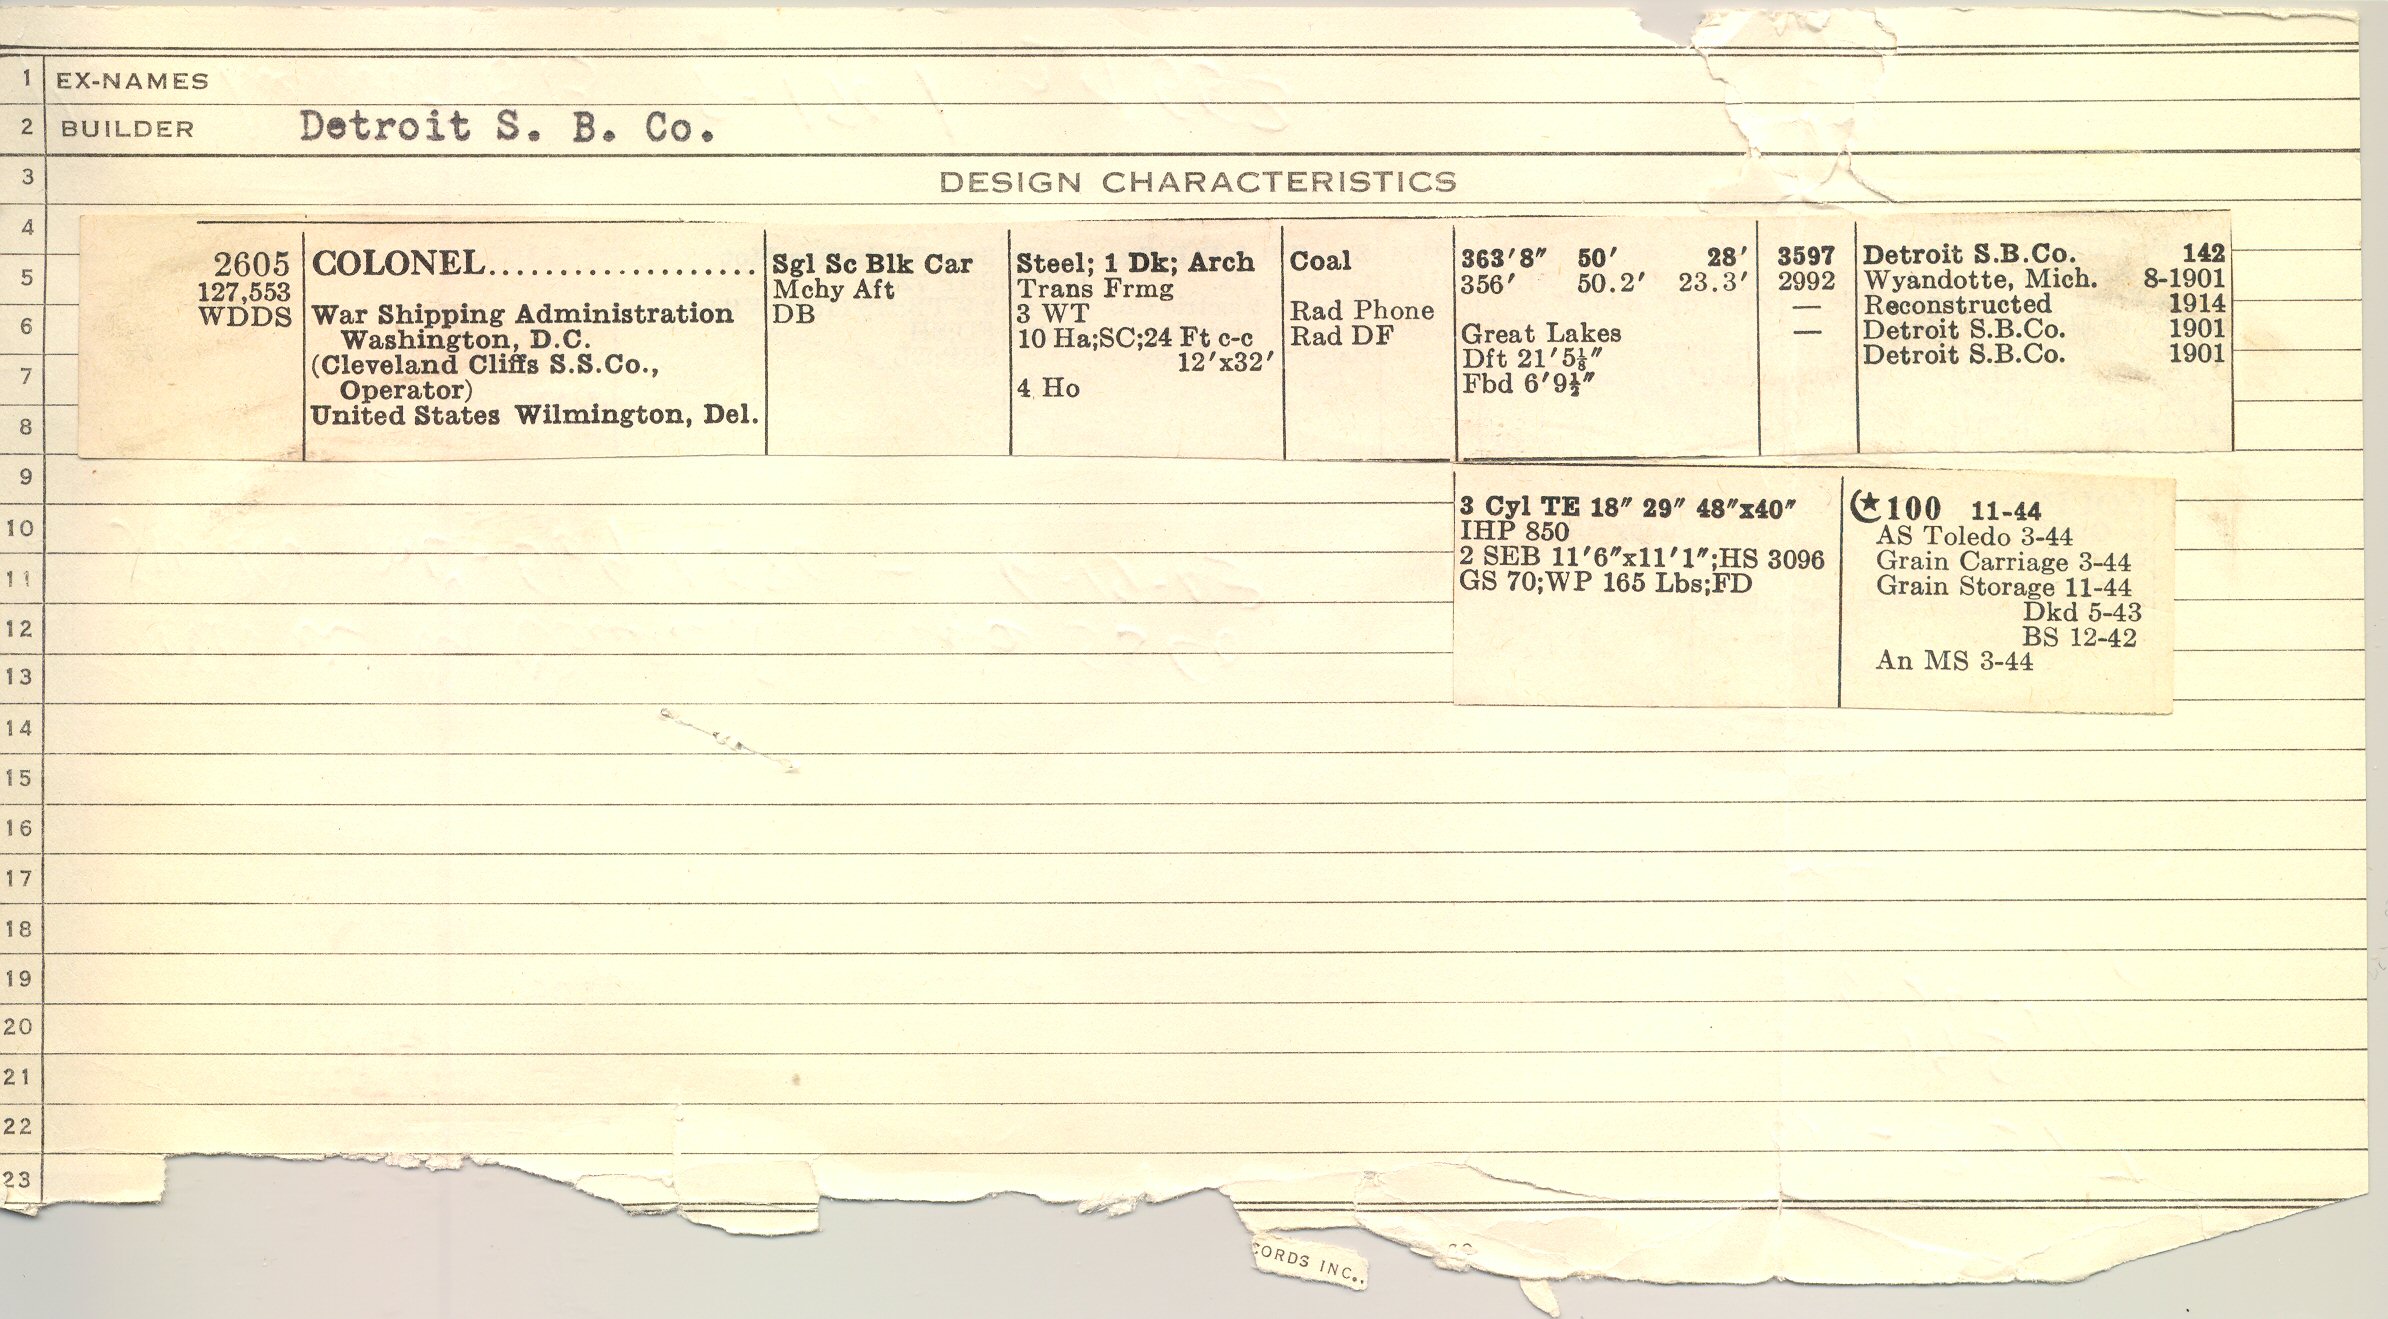 1 EX-NAMES
2 BUILDER Detroit S. B. Co.
3 DESIGN CHARACTERISTICS
4
5
6
7
8
2605 COLONEL................... Sgl Sc Blk Car Steel; 1 Dk; Arch Coal 363'8" 50' 28' 3597 Detroit S.B.Co. 142
127,553 Mchy Aft Trans Frmg 356' 50.2' 23.3' 2992 Wyandotte, Mich. 8-1901
WDDS War Shipping Administration DB 3 WT Rad Phone — Reconstructed 1914
Washington, D.C. 10 Ha;SC;24 Ft c-c Rad DF Great Lakes — Detroit S.B.Co. 1901
(Cleveland Cliffs S.S.Co., 12'x32' Dft 21'5⅛" Detroit S.B.Co. 1901
Operator) 4 Ho Fbd 6'9½"
United States Wilmington, Del.
9
10
11
12
13
3 Cyl TE 18" 29" 48"x40" ☪100 11-44
IHP 850 AS Toledo 3-44
2 SEB 11'6"x11'1";HS 3096 Grain Carriage 3-44
GS 70;WP 165 Lbs;FD Grain Storage 11-44
Dkd 5-43
BS 12-42
An MS 3-44
14
15
16
17
18
19
20
21
22
23
CORDS INC.,